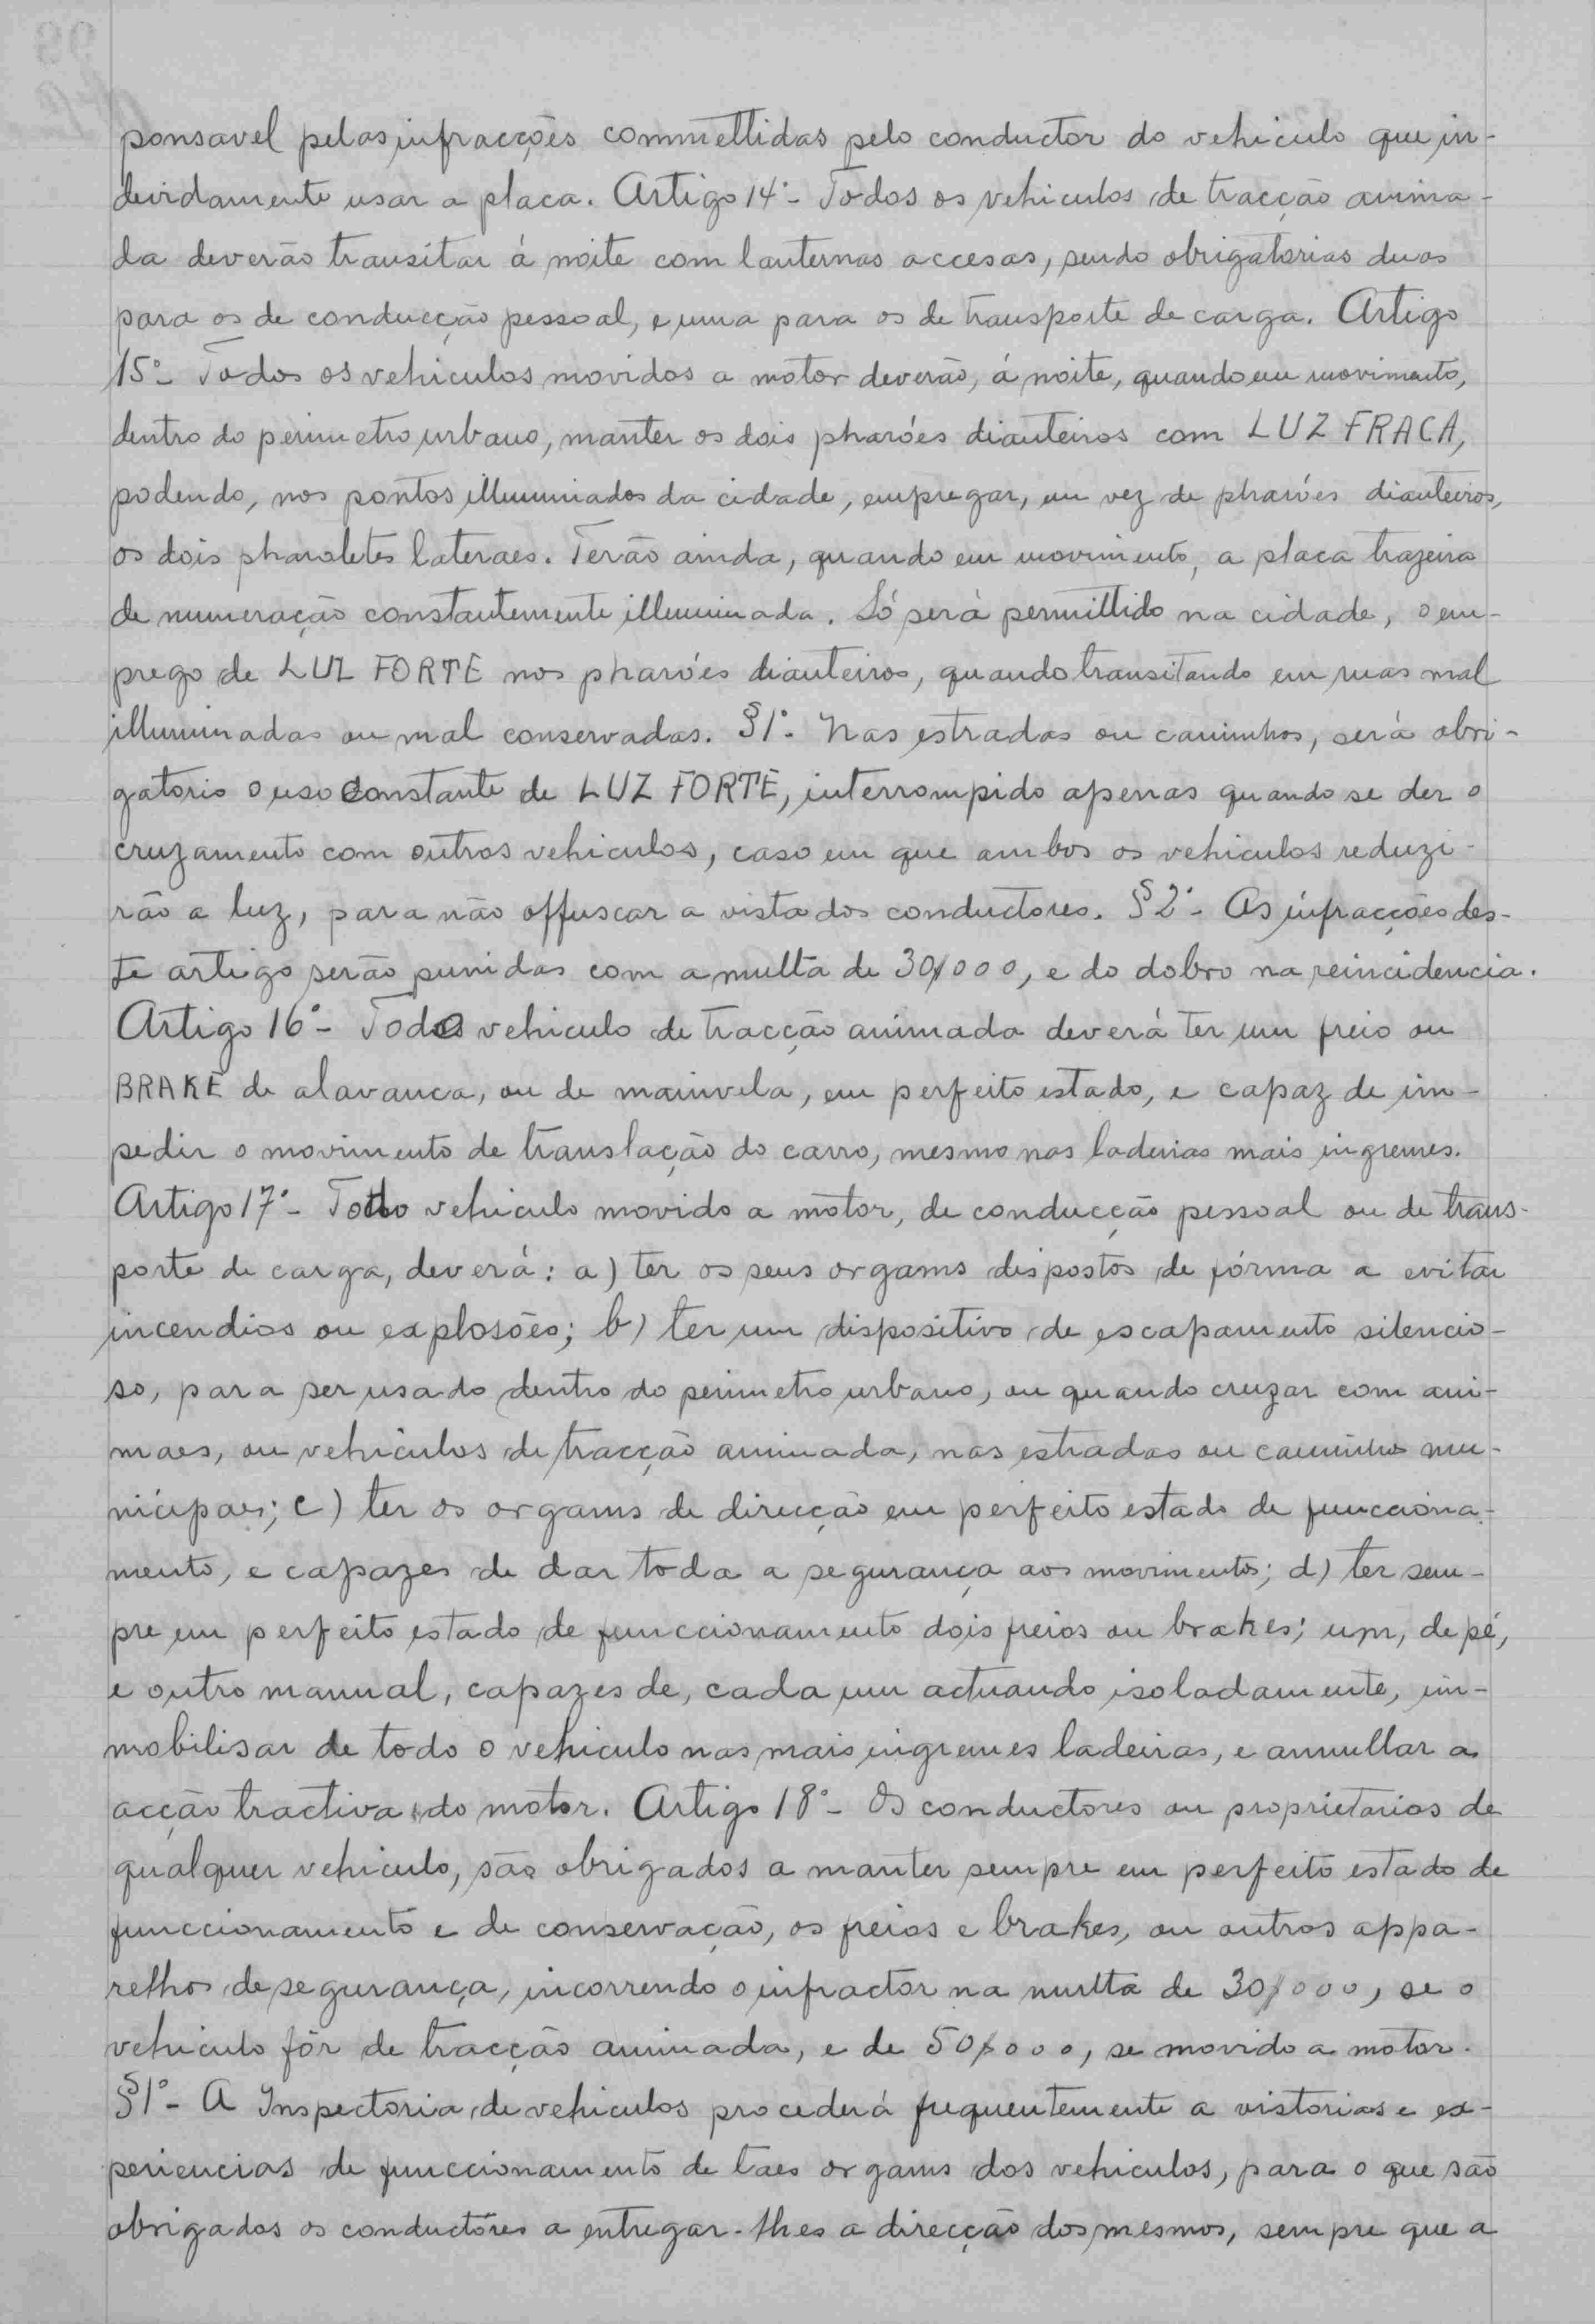 ponsavel pelas infracções commettidas pelo conductor do vehiculo que in-
devidamente usar a placa. Artigo 14º- Todos os vehiculos de tracção anima-
da deverão transitar á noite com lanternas accesas, sendo obrigatorias duas
para os de conducção pessoal, e uma para os de transporte de carga. Artigo
15º- Todos os vehiculos movidos a motor deverão, á noite, quando em movimento,
dentro do perimetro urbano, manter os dois pharóes dianteiros com LUZ FRACA,
podendo, nos pontos illuminados da cidade, empregar, em vez de pharóes dianteiros,
os dois pharoletes lateraes. Terão ainda, quando em movimento, a placa trazeira
de numeração constantemente illuminada. Só será permittido na cidade, o em-
prego de LUZ FORTE nos pharóes dianteiros, quando transitando em ruas mal
illuminadas ou mal conservadas. §1º- Nas estradas ou caminhos, será obri-
gatorio o uso constante de LUZ FORTE, interrompido apenas quando se der o
cruzamento com outros vehiculos, caso em que ambos os vehiculos reduzi-
rão a luz, para não offuscar a vista dos conductores. §2º- As infracções des-
te artigo serão punidas com a multa de 30$000, e do dobro na reincidencia.
Artigo 16º- Todo vehiculo de tracção animada deverá ter um freio ou
BRAKE de alavanca, ou de mainvela, em perfeito estado, e capaz de im-
pedir o movimento de translação do carro, mesmo nas ladeiras mais ingremes.
Artigo 17º- Todo vehiculo movido a motor, de conducção pessoal ou de trans-
porte de carga, deverá: a) ter os seus orgams dispostos de fórma a evitar
incendios ou explosões; b) ter um dispositivo de escapamento silencio-
so, para ser usado dentro do perimetro urbano, ou quando cruzar com ani-
maes, ou vehiculos de tracção animada, nas estradas ou caminhos mu-
nicipaes; c) ter os orgams de direcção em perfeito estado de funcciona-
mento, e capazes de dar toda a segurança aos movimentos; d) ter sem-
pre em perfeito estado de funccionamento dois freios ou brakes; um, de pé,
e outro manual, capazes de, cada um actuando isoladamente, im-
mobilisar de todo o vehiculo nas mais ingremes ladeiras, e annullar a
acção tractiva do motor. Artigo 18º- Os conductores ou proprietarios de
qualquer vehiculo, são obrigados a manter sempre em perfeito estado de
funccionamento e de conservação, os freios e brakes, ou outros appa-
relhos de segurança, incorrendo o infractor na multa de 30$000, se o
vehiculo fôr de tracção animada, e de 50$000, se movido a motor.
§1º- A Inspectoria de vehiculos procederá frequentemente a vistorias e ex-
periencias de funccionamento de taes orgams dos vehiculos, para o que são
obrigados os conductores a entregar-lhes a direcção dos mesmos, sempre que a